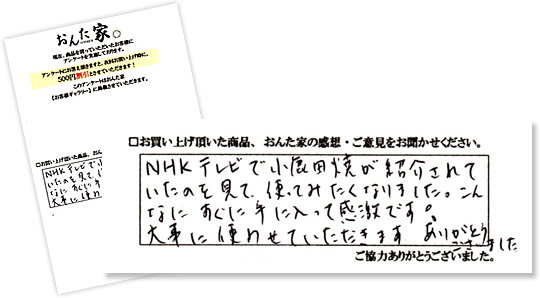 おんた家。
現在、商品を買っていただいたお客様に
アンケートを実施しております。
アンケートにお答え頂きますと、次回お買い上げ時に、
500円割引とさせていただきます！
このアンケートはおんた家
【お客様ギャラリー】に掲載させていただきます。
□お買い上げ頂いた商品、おん
NHKテレビで小
いたのを見て、
なに すぐに手
大事に使わ
□お買い上げ頂いた商品、おんた家の感想・ご意見をお聞かせください。
NHKテレビで小鹿田焼が紹介されて
いたのを見て、使ってみたくなりました。こん
なに すぐに手に入って感激です。
大事に使わせていただきます ありがとう
ございました
ご協力ありがとうございました。